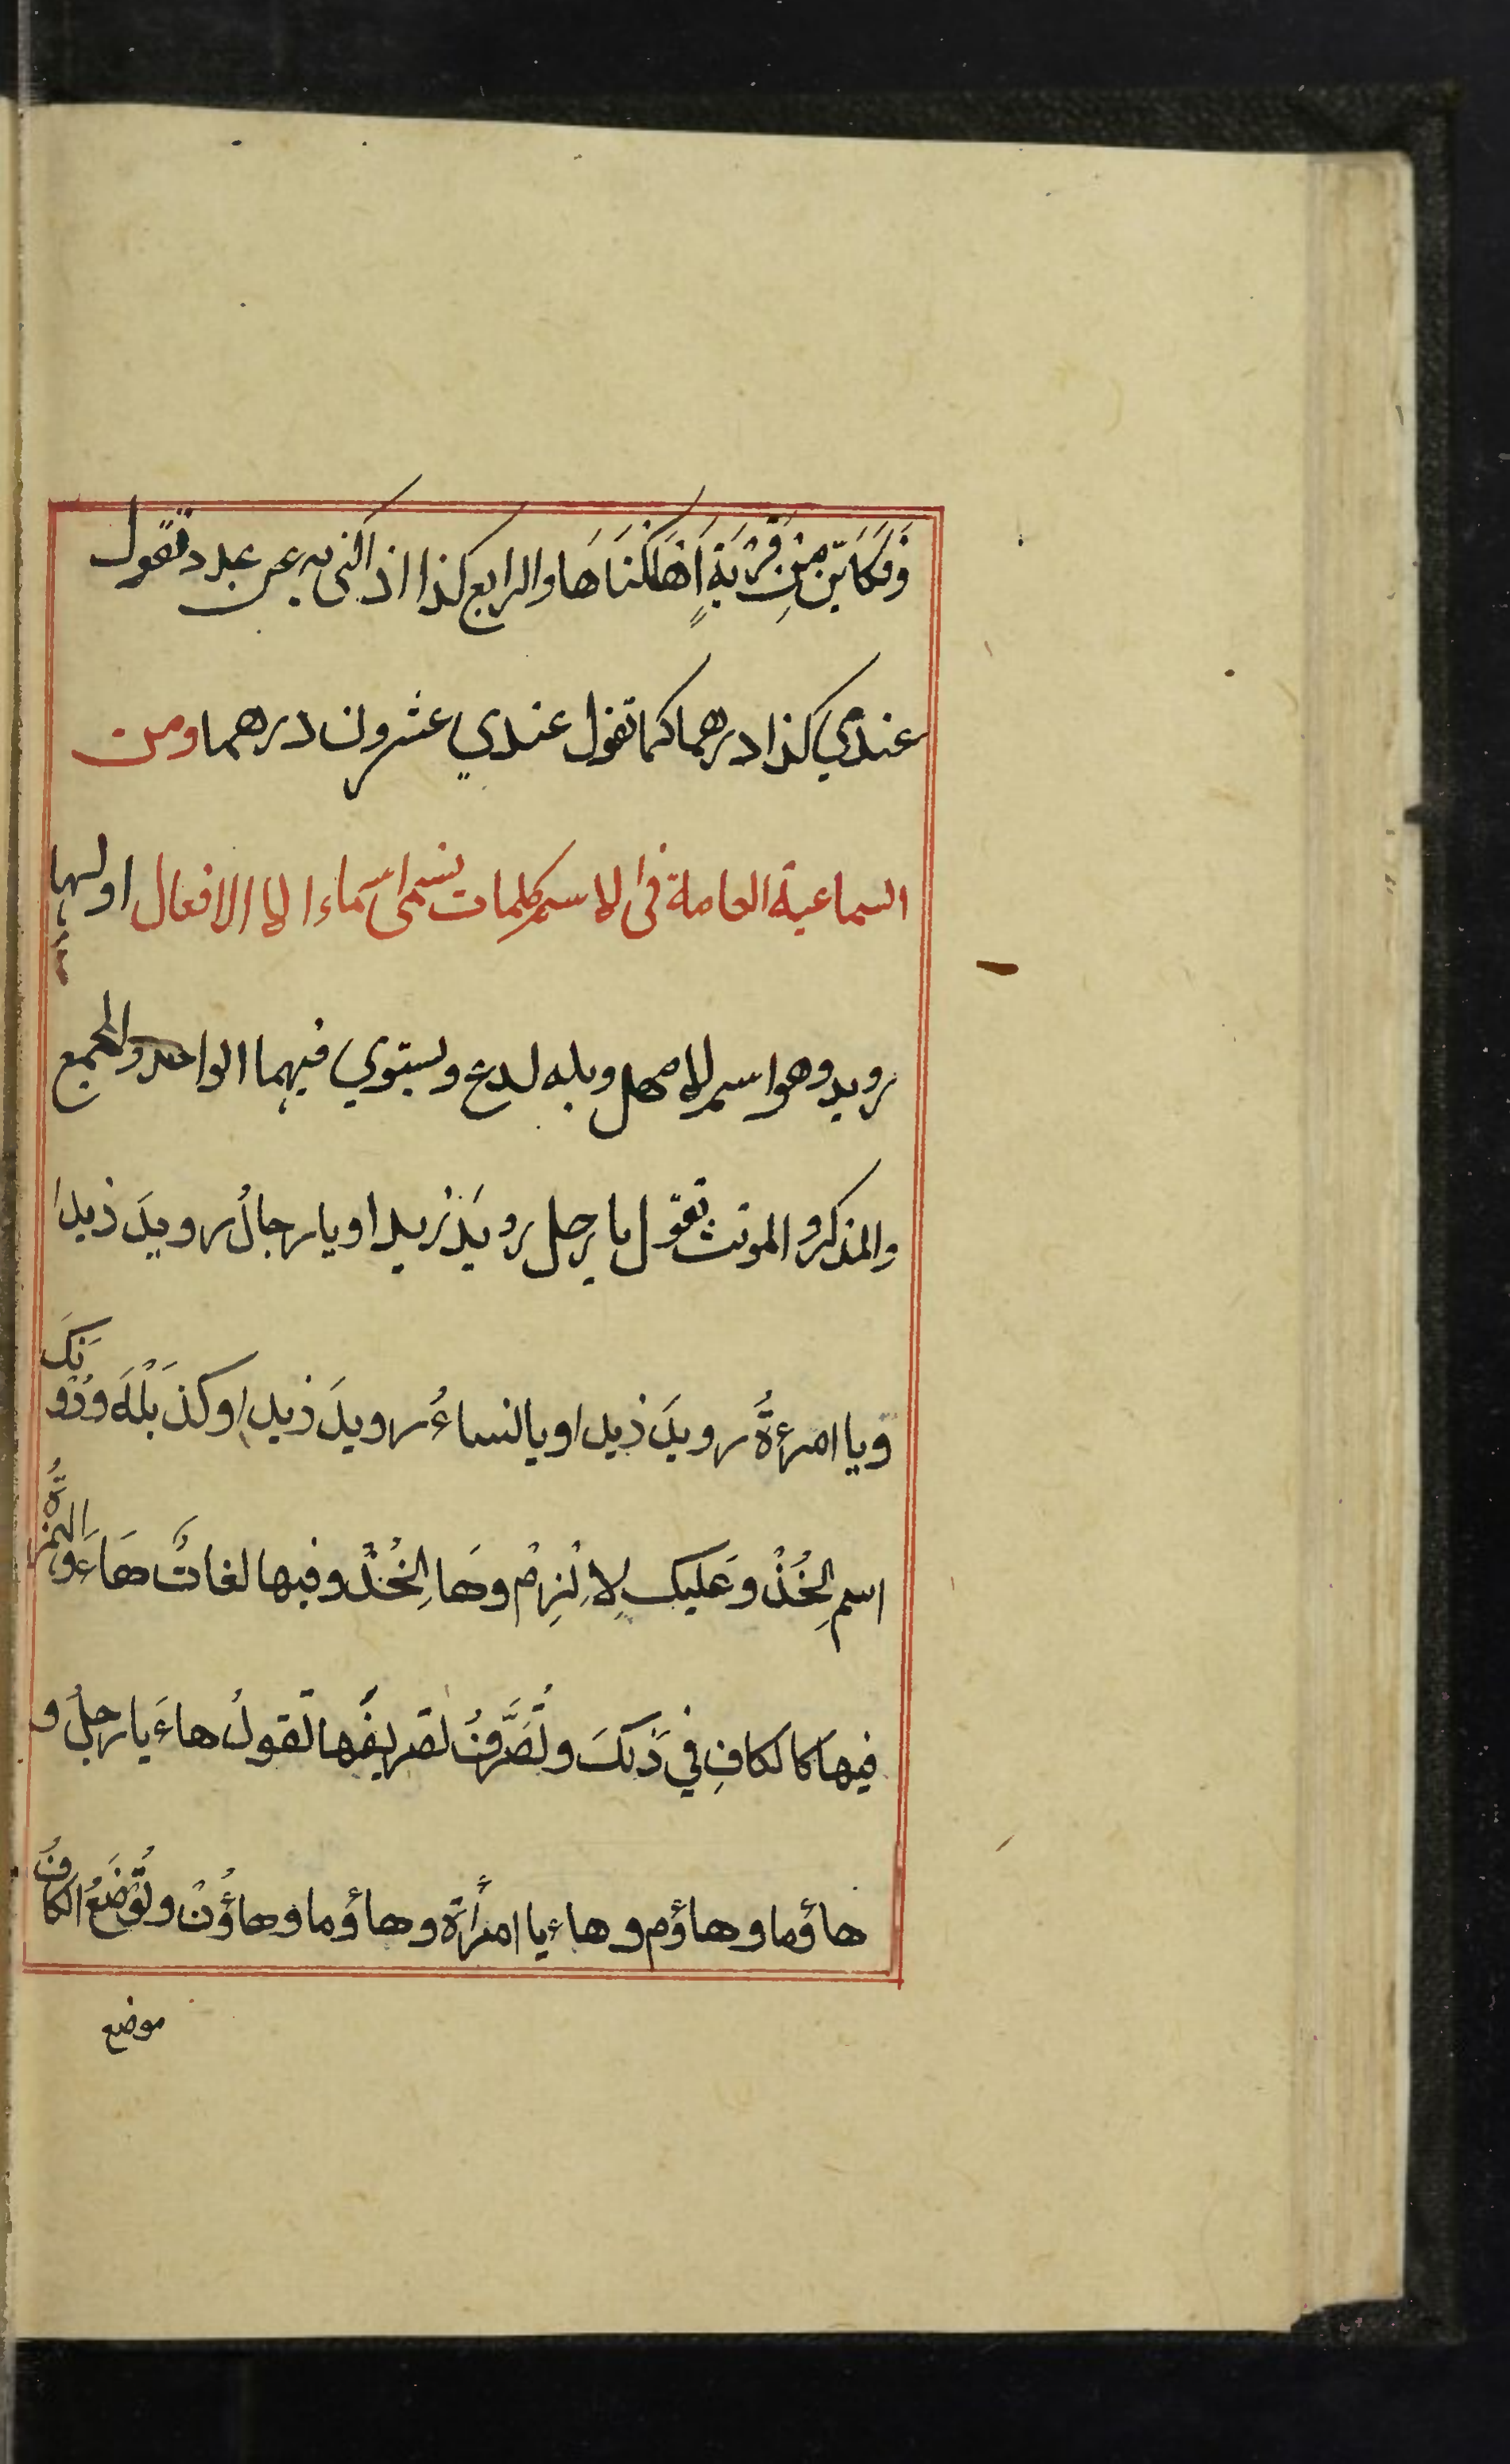 وَفَكَاَيّن مِنْ قَرْيَةٍ اَهْلَكْنَاهَا والرابع كذا اذ اكنى به عن عدد تقول
عندي كذا درهما كما تقول عندي عشرون درهما ومن
السماعية العاملة فى الاسم كلمات تسمى اسماء الا الافعال اولها
رويد وهو اسم لامهل وبله لدع ويستوي فيهما الواحد والجمع
والمذكر والمونث تقول يا رجل رويَدْ زيدا او يا رجالُ رويدَ ذيدا
ويا امرءةُ رويدَ ذيدا او يا لنساءُ رويدَ ذيدا وكذ بَلْهَ ودُونَكَ
اسم لِخُذْ وعَليك لاِلْزِمْ وهَا لِخُذْ وفيها لغاتٌ هَاءَ والهمزةُ
فيها كالكافِ في ذَكَ وتُصَرَّفُ تصريفُها تقولُ هاءَ يا رجلُ و
هاؤما وهاؤم وهاءِ يا امرأة وهاؤما وهاؤُنْ وتُوْضَعُ الكافُ
موضع